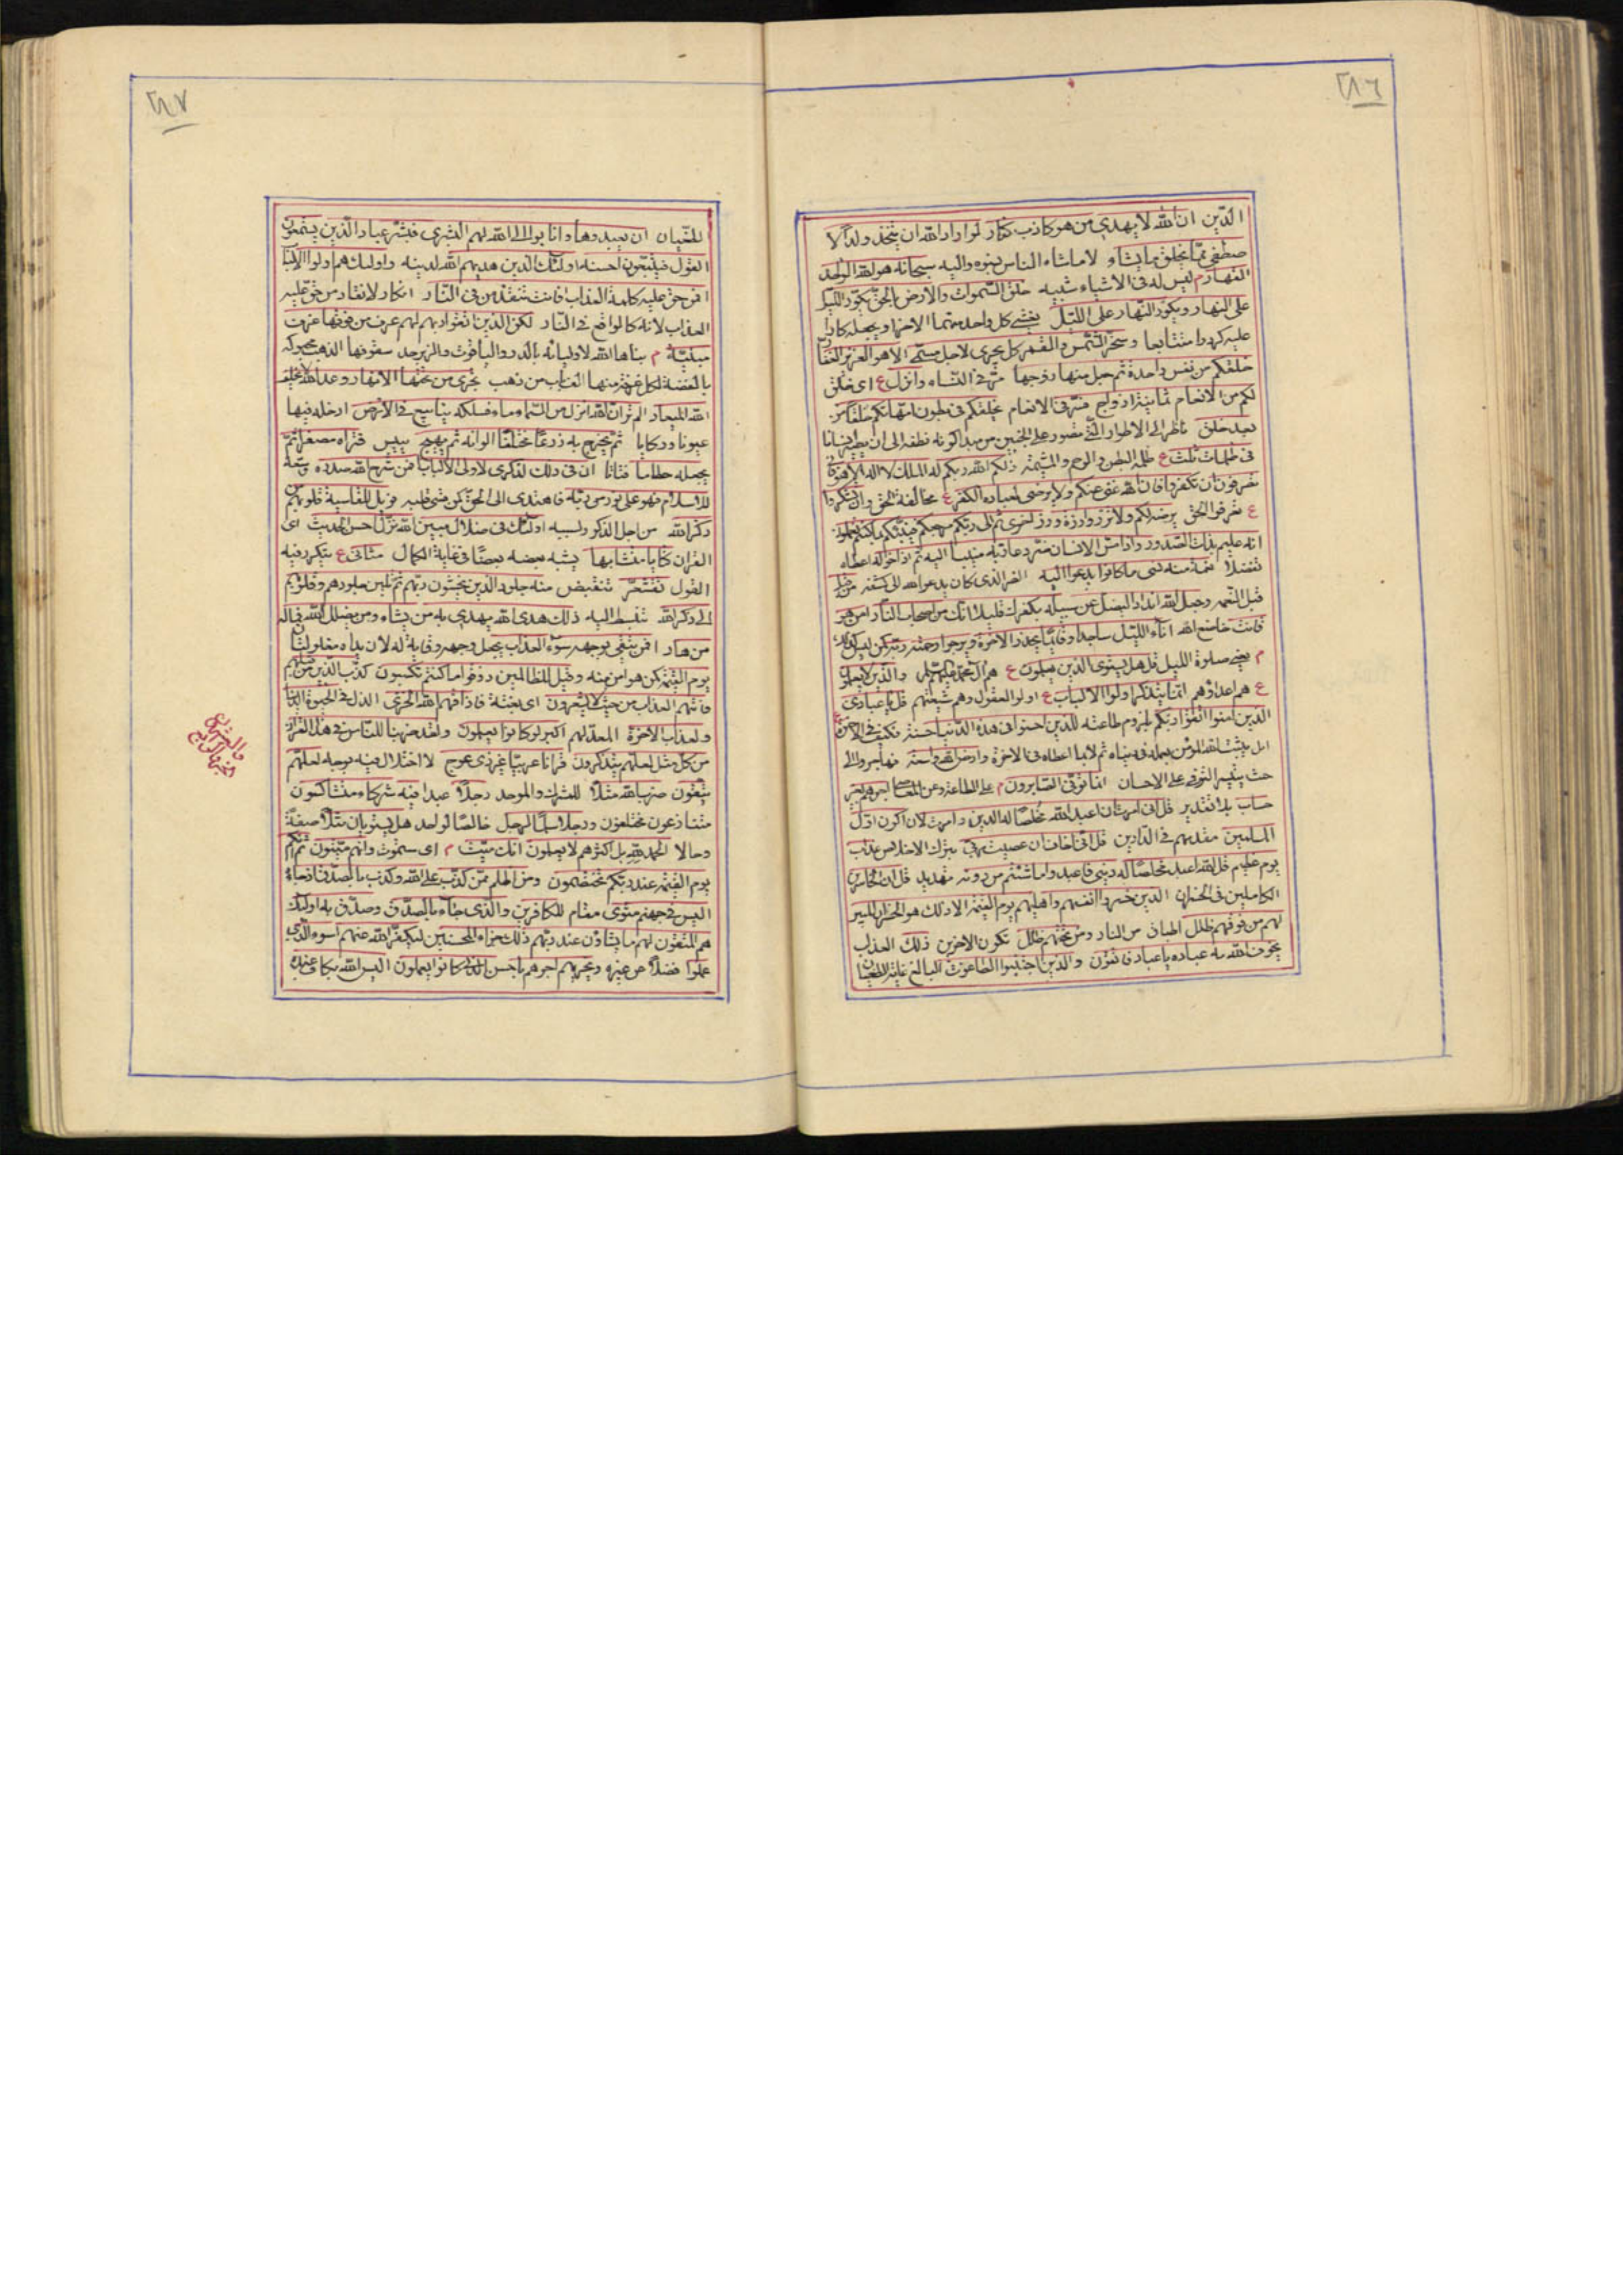 ٢٨٦
الدين ان الله لا يهدي من هو كاذب كفار لو اراد الله ان يتخذ ولدا لا
صطفى مما يخلق ما يشاء لا ما شاء الناس سبحانه هو الله الواحد
القهار م ليس له في الاشياء شبيه خلق السموات والارض بالحق يكور الليل
على النهار ويكور النهار على الليل يغشى كل واحد منهما الاخر
متتابعا وسخر الشمس والقمر كل يجري لاجل مسمى الا هو العزيز الغفار
خلقكم من نفس واحدة ثم جعل منها زوجها وانزل ع اي خلق
لكم من الانعام ثمانية ازواج يخلقكم في بطون امهاتكم خلقا من
بعد خلق
في ظلمات ثلث ع ظلمة البطن والرحم والمشيمة ذلكم الله ربكم له الملك لا اله الا هو فانى
تصرفون ان تكفروا فان الله غني عنكم ولا يرضى لعباده الكفر ع وان تشكروا
يرضه لكم ولا تزر وازرة وزر اخرى ثم الى ربكم مرجعكم فينبئكم بما كنتم تعملون
انه عليم بذات الصدور واذا مس الانسان ضر دعا ربه منيبا اليه ثم اذا خوله اعطاه
تفضلا نعمة منه نسي ما كانوا يدعوا اليه الضر الذي كان يدعو الله الى كشفه من
قبل النعمة وجعل لله اندادا ليضل عن سبيله بكفرك قليلا انك من اصحاب النار امن هو
قانت خاضع لله آناء الليل ساجدا وقائما يحذر الاخرة ويرجوا رحمة ربه كمن ليس كذلك
م يعني صلوة الليل قل هل يستوي الذين يعلمون ع هم آل محمد والذين لا يعلمون
ع هم اعداؤهم انما يتذكر اولوا الالباب ع اولو العقول وهم شيعتهم قل يا عبادي
الذين امنوا اتقوا ربكم بلزوم طاعته للذين احسنوا في هذه الدنيا حسنة
وارض الله واسعة فهاجروا الى
حيث يتيسر التوفر على الاحسان انما يوفى الصابرون م على الطاعة وعن اجرهم بغير
حساب بلا تقدير قل اني امرت ان اعبد الله مخلصا له الدين وامرت لان اكون اول
المسلمين مقدمهم في الدارين قل اني اخاف ان عصيت ربي بترك الاخلاص عذاب
يوم عظيم قل الله اعبد مخلصا له ديني فاعبدوا ما شئتم من دونه تهديد قل ان الخاسرين
الكاملين في الخسران الذين خسروا انفسهم واهليهم يوم القيمة الا ذلك هو الخسران المبين
لهم من فوقهم ظلل اطباق من النار ومن تحتهم ظلل تكون لاخرين ذلك العذاب
يخوف الله به عباده يا عباد فاتقون والذين اجتنبوا الطاغوت البالغ غاية الطغيان
٢٨٧
ان يعبدوها وانابوا الى الله لهم البشرى فبشر عباد الذين يستمعون
القول فيتبعون احسنه اولئك الذين هديهم الله لدينه واولئك هم اولوا الالباب
افمن حق عليه كلمة العذاب افانت تنقذ من في النار انكار لانقاذ من حق عليه
العذاب لانه كالواقع في النار لكن الذين اتقوا ربهم لهم غرف من فوقها غرف
مبنية م بناها الله لاوليائه بالدر والياقوت والزبرجد سقوفها الذهب محبوكة
بالفضة لكل غرفة منها الف باب من ذهب تجري من تحتها الانهار وعد الله لا يخلف
الله الميعاد الم تر ان الله انزل من السماء ماء فسلكه ينابيع في الارض ادخله فيها
عيونا وركايا ثم يخرج به زرعا مختلفا الوانه ثم يهيج ييبس فتراه مصفرا ثم
يجعله حطاما فتاتا ان في ذلك لذكرى لاولى الالباب افمن شرح الله صدره وسعه
للاسلام فهو على نور من ربه فاهتدى الى الحق كمن قسى قلبه فويل للقاسية قلوبهم من
ذكر الله من اجل الذكر وبسببه اولئك في ضلال مبين الله نزل احسن الحديث اي
القران كتابا متشابها يشبه بعضه بعضا في غاية الكمال مثاني ع يتكرر فيه
القول تقشعر تنقبض منه جلود الذين يخشون ربهم ثم تلين جلودهم وقلوبهم
الى ذكر الله تنبسط اليه ذلك هدى الله يهدي به من يشاء ومن يضلل الله فما له
من هاد افمن يتقي بوجهه سوء العذاب يجعل وجهه وقاية له لان يداه مغلولتان
يوم القيمة كمن هو امن منه وقيل للظالمين ذوقوا ما كنتم تكسبون كذب الذين من قبلهم
فاتيهم العذاب من حيث لا يشعرون اي بغتة فاذاقهم الله الخزي الذل في الحيوة الدنيا
ولعذاب الاخرة المعد لهم اكبر لو كانوا يعلمون ولقد ضربنا للناس في هذا القران
من كل مثل لعلهم يتذكرون قرانا عربيا غير ذي عوج لا اختلال فيه بوجه لعلهم
يتقون ضرب الله مثلا للمشرك والموحد رجلا عبدا فيه شركاء متشاكسون
متنازعون مختلفون ورجلا سلما لرجل خالصا لواحد هل يستويان مثلا صفة
وحالا الحمد لله بل اكثرهم لا يعلمون انك ميت م اي ستموت وانهم ميتون ثم انكم
يوم القيمة عند ربكم تختصمون فمن اظلم ممن كذب على الله وكذب بالصدق اذ جاءه
اليس في جهنم مثوى مقام للكافرين والذي جاء بالصدق وصدق به اولئك
هم المتقون لهم ما يشاؤن عند ربهم ذلك جزاء المحسنين ليكفر الله عنهم اسوء الذي
عملوا فضلا عن غيره ويجزيهم اجرهم باحسن الذي كانوا يعملون اليس الله بكاف عبده